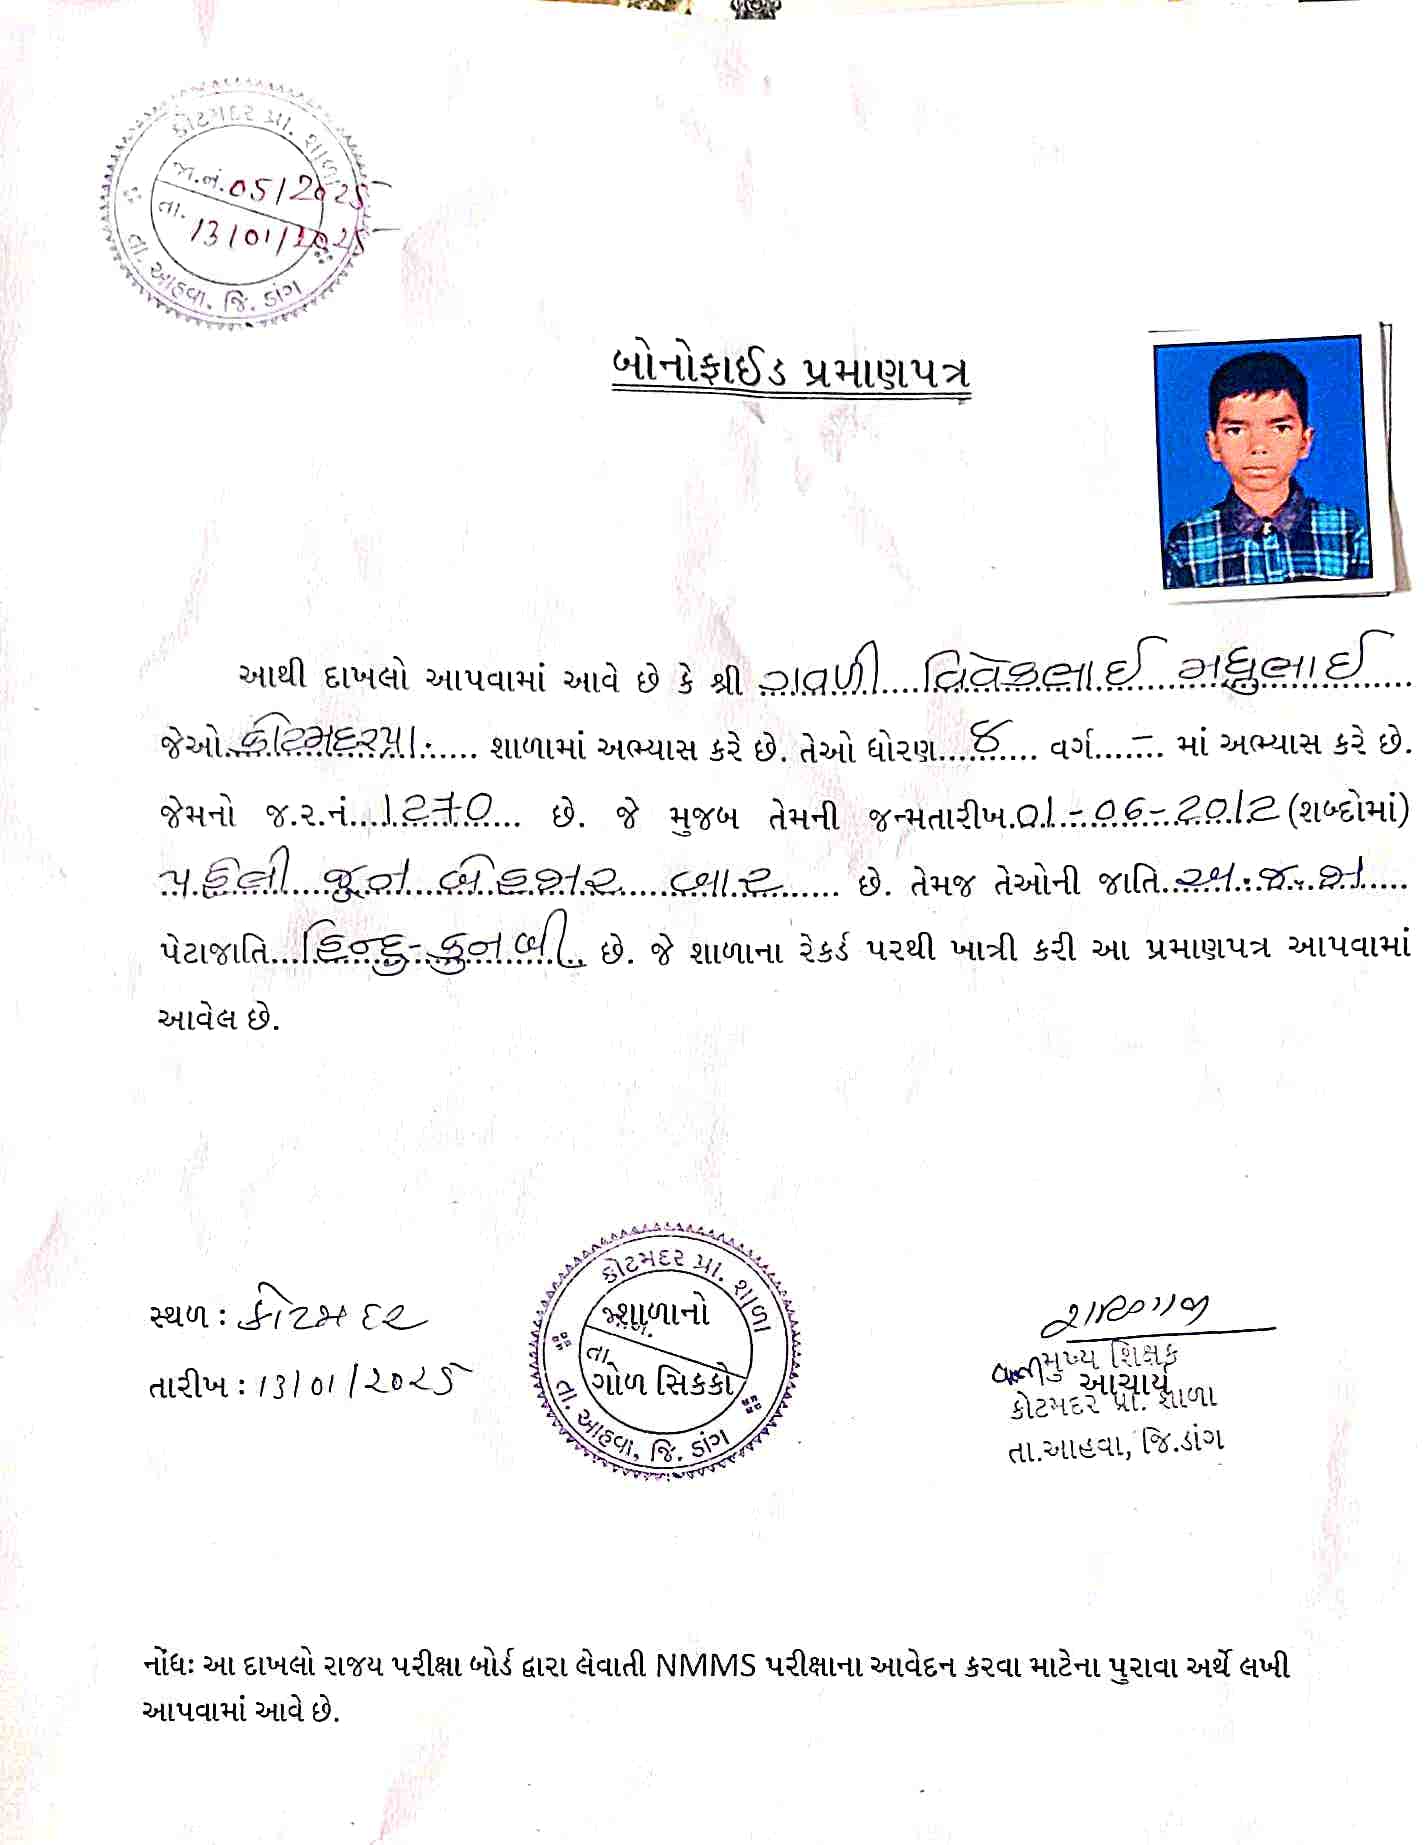 કોટમદર પ્રા. શાળા
જા.નં. 05/2025
તા. 13/01/2025
તા. આહવા. જિ. ડાંગ
બોનોફાઈડ પ્રમાણપત્ર
આથી દાખલો આપવામાં આવે છે કે શ્રી ગવળી વિવેકભાઈ મધુભાઈ
જેઓ કોટમદર પ્રા. શાળામાં અભ્યાસ કરે છે. તેઓ ધોરણ ૪ વર્ગ - માં અભ્યાસ કરે છે.
જેમનો જ.ર.નં. 1270 છે. જે મુજબ તેમની જન્મતારીખ 01-06-2012 (શબ્દોમાં)
પહેલી જૂન બેહજાર બાર છે. તેમજ તેઓની જાતિ અ.જ.જા
પેટાજાતિ હિન્દુ-કુનબી છે. જે શાળાના રેકર્ડ પરથી ખાત્રી કરી આ પ્રમાણપત્ર આપવામાં
આવેલ છે.
કોટમદર પ્રા. શાળા
શાળાનો
તા.
ગોળ સિક્કો
તા. આહવા, જિ. ડાંગ
સ્થળ : કોટમદર
તારીખ : 13/01/2025
મુખ્ય શિક્ષક
આચાર્ય
કોટમદર પ્રા. શાળા
તા.આહવા, જિ.ડાંગ
નોંધઃ આ દાખલો રાજય પરીક્ષા બોર્ડ દ્વારા લેવાતી NMMS પરીક્ષાના આવેદન કરવા માટેના પુરાવા અર્થે લખી
આપવામાં આવે છે.